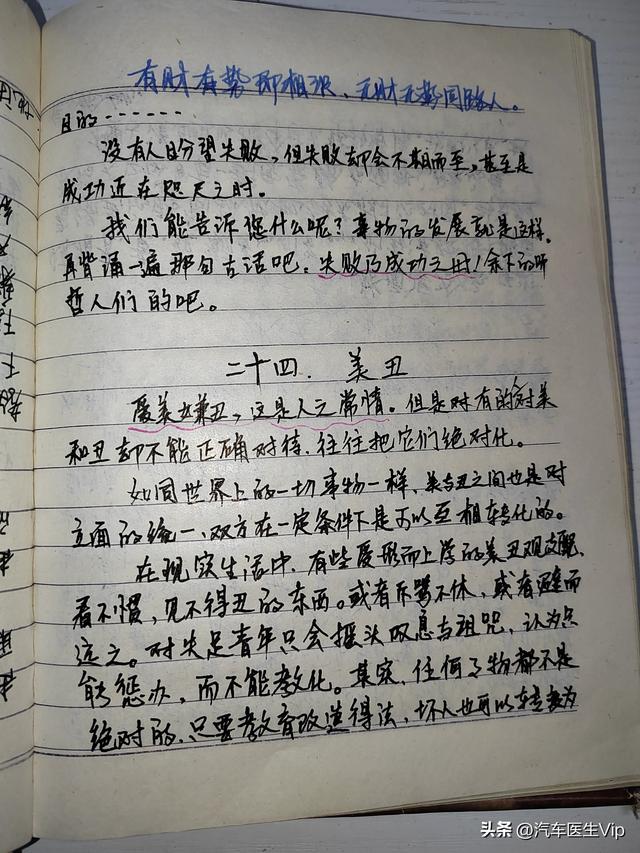 有财有势即相识、无财无势同路人。
目的……
没有人盼望失败，但失败却会不期而至，甚至是
成功近在咫尺之时。
我们能告诉您什么呢？事物的发展就是这样。
再背诵一遍那句古话吧，失败乃成功之母！余下的听
哲人们的吧。
二十四、美丑
爱美嫌丑，这是人之常情。但是对有的人对美
和丑却不能正确对待，往往把它们绝对化。
如同世界上的一切事物一样，美与丑之间也是对
立面的统一，双方在一定条件下是可以互相转化的。
在现实生活中，有些受形而上学的美丑观支配，
看不惯，见不得丑的东西。或者斥骂不休，或者避而
远之。对失足青年只会摇头叹息与诅咒，认为只
能惩办，而不能教化。其实，任何事物都不是
绝对的，只要教育改造得法，坏人也可以转变为
头条 @汽车医生Vip